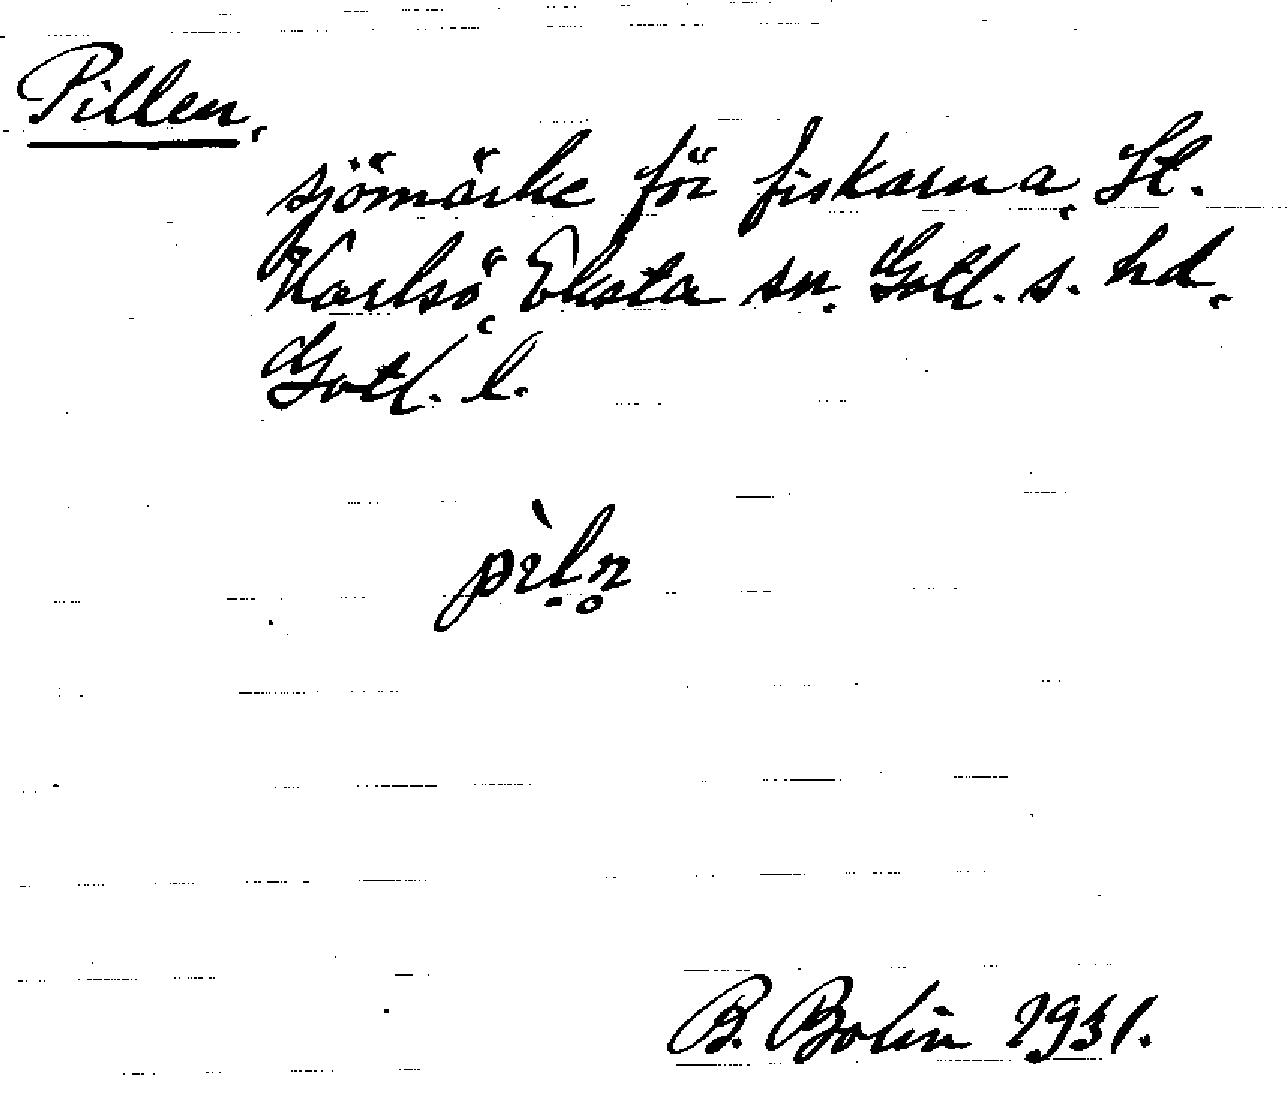 Pillen,
sjömärke för fiskarna, St.
Karlsö, Eksta sn. Gotl. s. hd,
Gotl. l.
pìḷn̥
B. Bolin 1931.